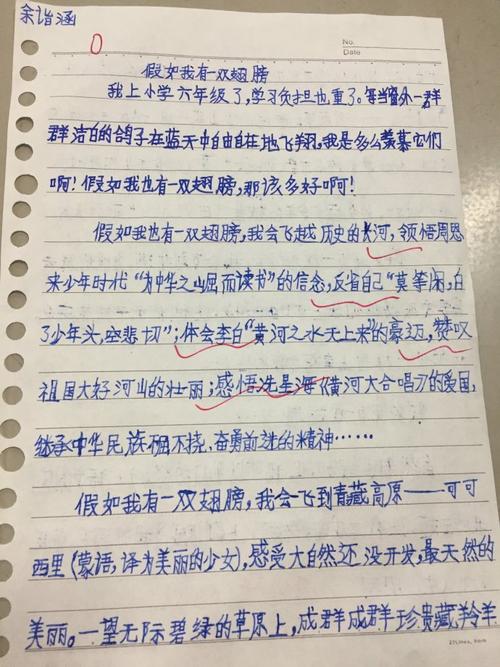 余诣涵
No.
Date
假如我有一双翅膀
我上小学六年级了,学习负担也重了。每当窗外一群
群洁白的鸽子在蓝天中自由自在地飞翔,我是多么羡慕它们
啊!假如我也有一双翅膀,那该多好啊!
假如我也有一双翅膀,我会飞越历史的长河,领悟周恩
来少年时代“为中华之崛而读书”的信念,反省自己“莫等闲,白
了少年头,空悲切”;体会李白“黄河之水天上来”的豪迈,赞叹
祖国大好河山的壮丽;感悟冼星海《黄河大合唱》的爱国,
继承中华民族不挠、奋勇前进的精神……
假如我有一双翅膀,我会飞到青藏高原——可可
西里(蒙语,译为美丽的少女),感受大自然还没开发,最天然的
美丽。一望无际碧绿的草原上,成群成群珍贵藏羚羊